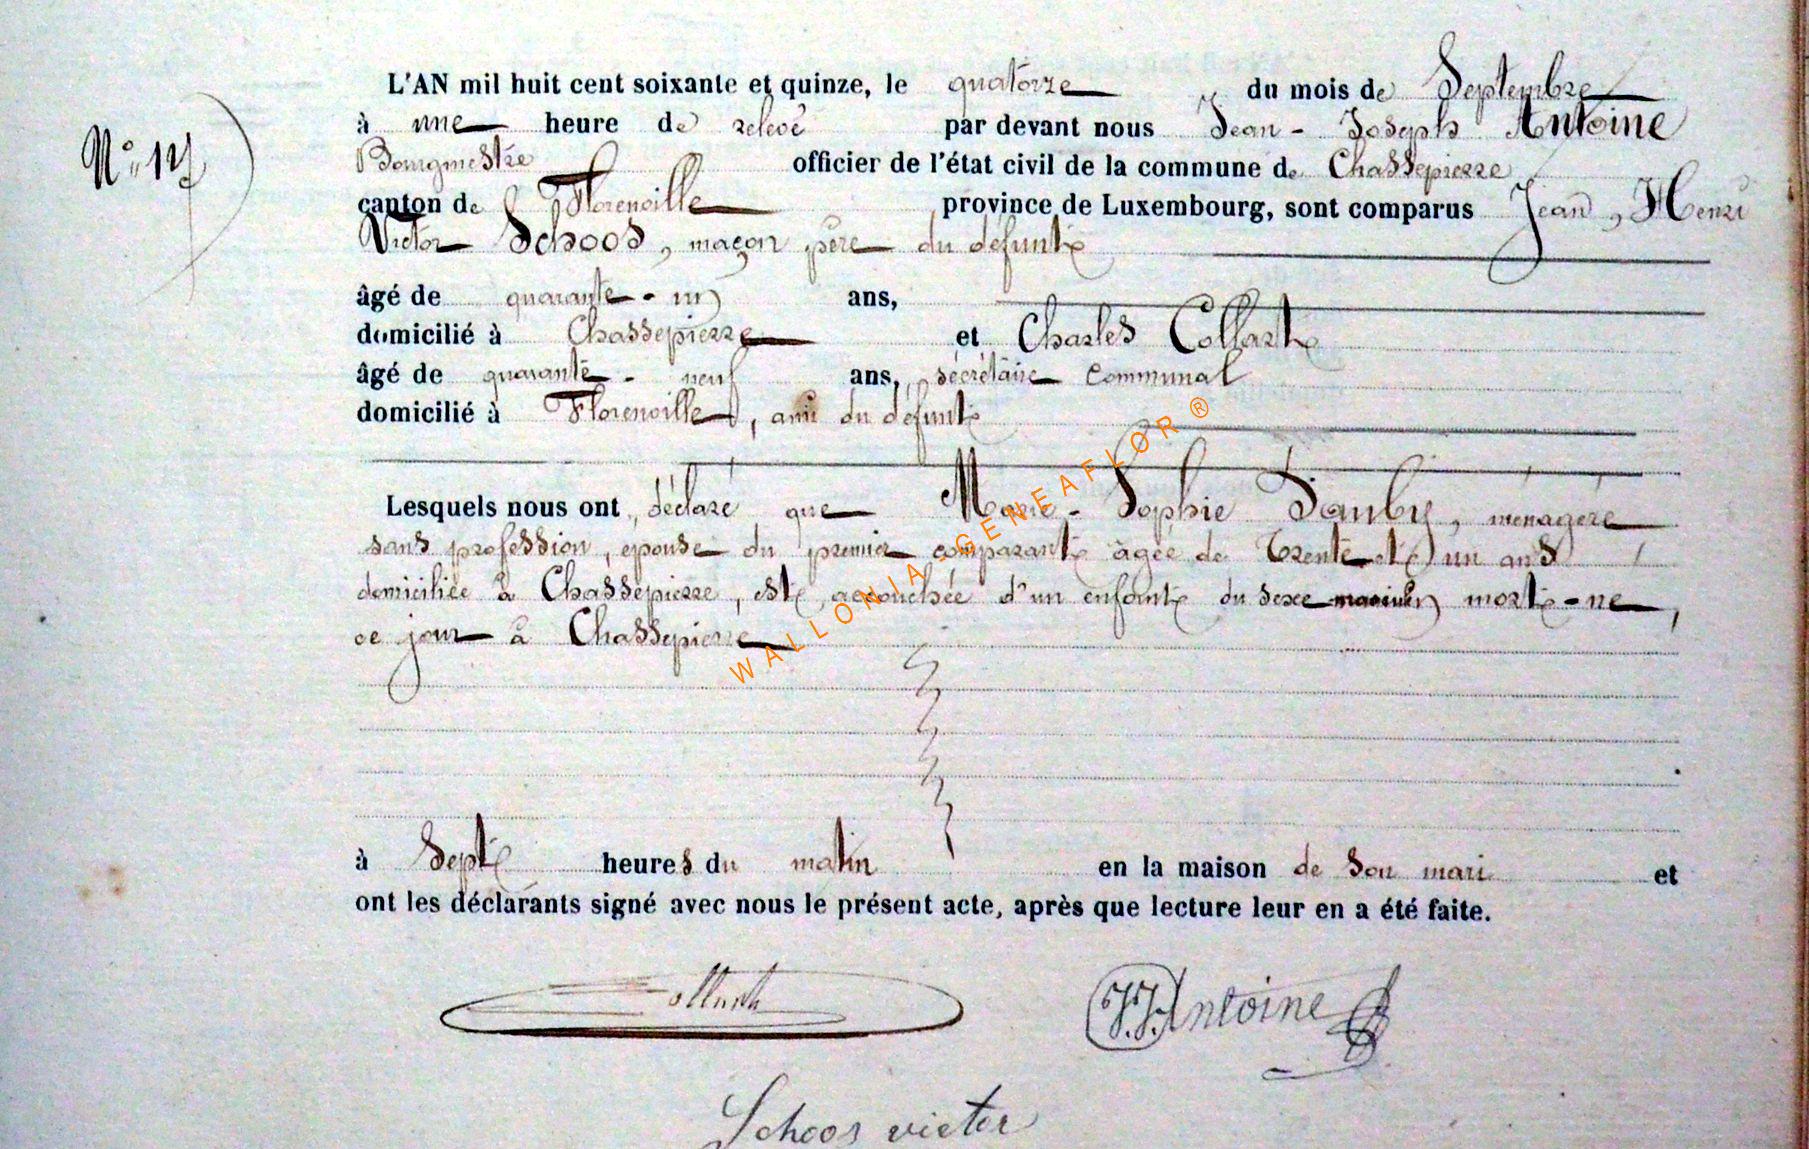 L'AN mil huit cent soixante et quinze, le quatorze du mois de Septembre
à une heure de relevé par devant nous Jean-Joseph Antoine
N° 17
Bourgmestre officier de l'état civil de la commune de Chassepierre
canton de Florenville province de Luxembourg, sont comparus Jean, Henri
Victor Schoos, maçon père du défunt
âgé de quarante-un ans,
domicilié à Chassepierre et Charles Collart
âgé de quarante-neuf ans, sécrétaire communal
domicilié à Florenville, ami du défunt
WALLONIA-GENEAFLOR ®
Lesquels nous ont déclaré que Marie-Sophie Dauby, ménagère
sans profession, épouse du premier comparant âgée de trente et un ans
domiciliée à Chassepierre, est accouchée d'un enfant du sexe masculin mort-né,
ce jour à Chassepierre
à Sept heures du matin en la maison de son mari et
ont les déclarants signé avec nous le présent acte, après que lecture leur en a été faite.
Collart
J.J. Antoine
Schoos victor